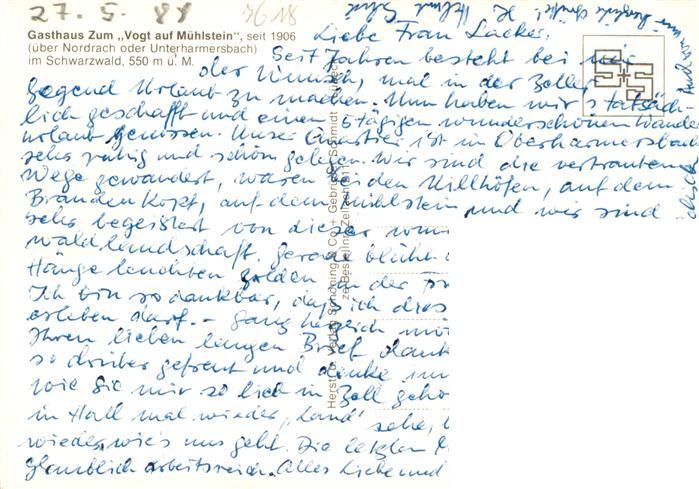 27.5.88
3618
Gasthaus Zum „Vogt auf Mühlstein", seit 1906
(über Nordrach oder Unterharmersbach)
im Schwarzwald, 550 m ü. M.
Liebe Frau Lacker,
Seit Jahren besteht bei mir
der Wunsch, mal in der Zeller
Gegend Urlaub zu machen. Nun haben wir's tatsäch-
lich geschafft und einen 5tägigen wunderschönen Wander
urlaub genossen. Unser Quartier ist in Oberharmersbach
sehr ruhig und schön gelegen. Wir sind die vertrauten
Wege gewandert, waren bei den Hillhöfen, auf dem
Brandenkopf, auf dem Mühlstein und wir sind
sehr begeistert von dieser
waldlandschaft. Gerade blüht
Hänge leuchten golden in der
Ich bin so dankbar, daß ich dies
erleben darf. – Ganz herzlich
Ihren lieben langen Brief
so drüber gefreut und danke
wie Sie mir so lieb in Zell
in Hall mal wieder „Land" sehe,
wieder, wie's uns geht. Die letzten
glaublich arbeitsreich. Alles Liebe und